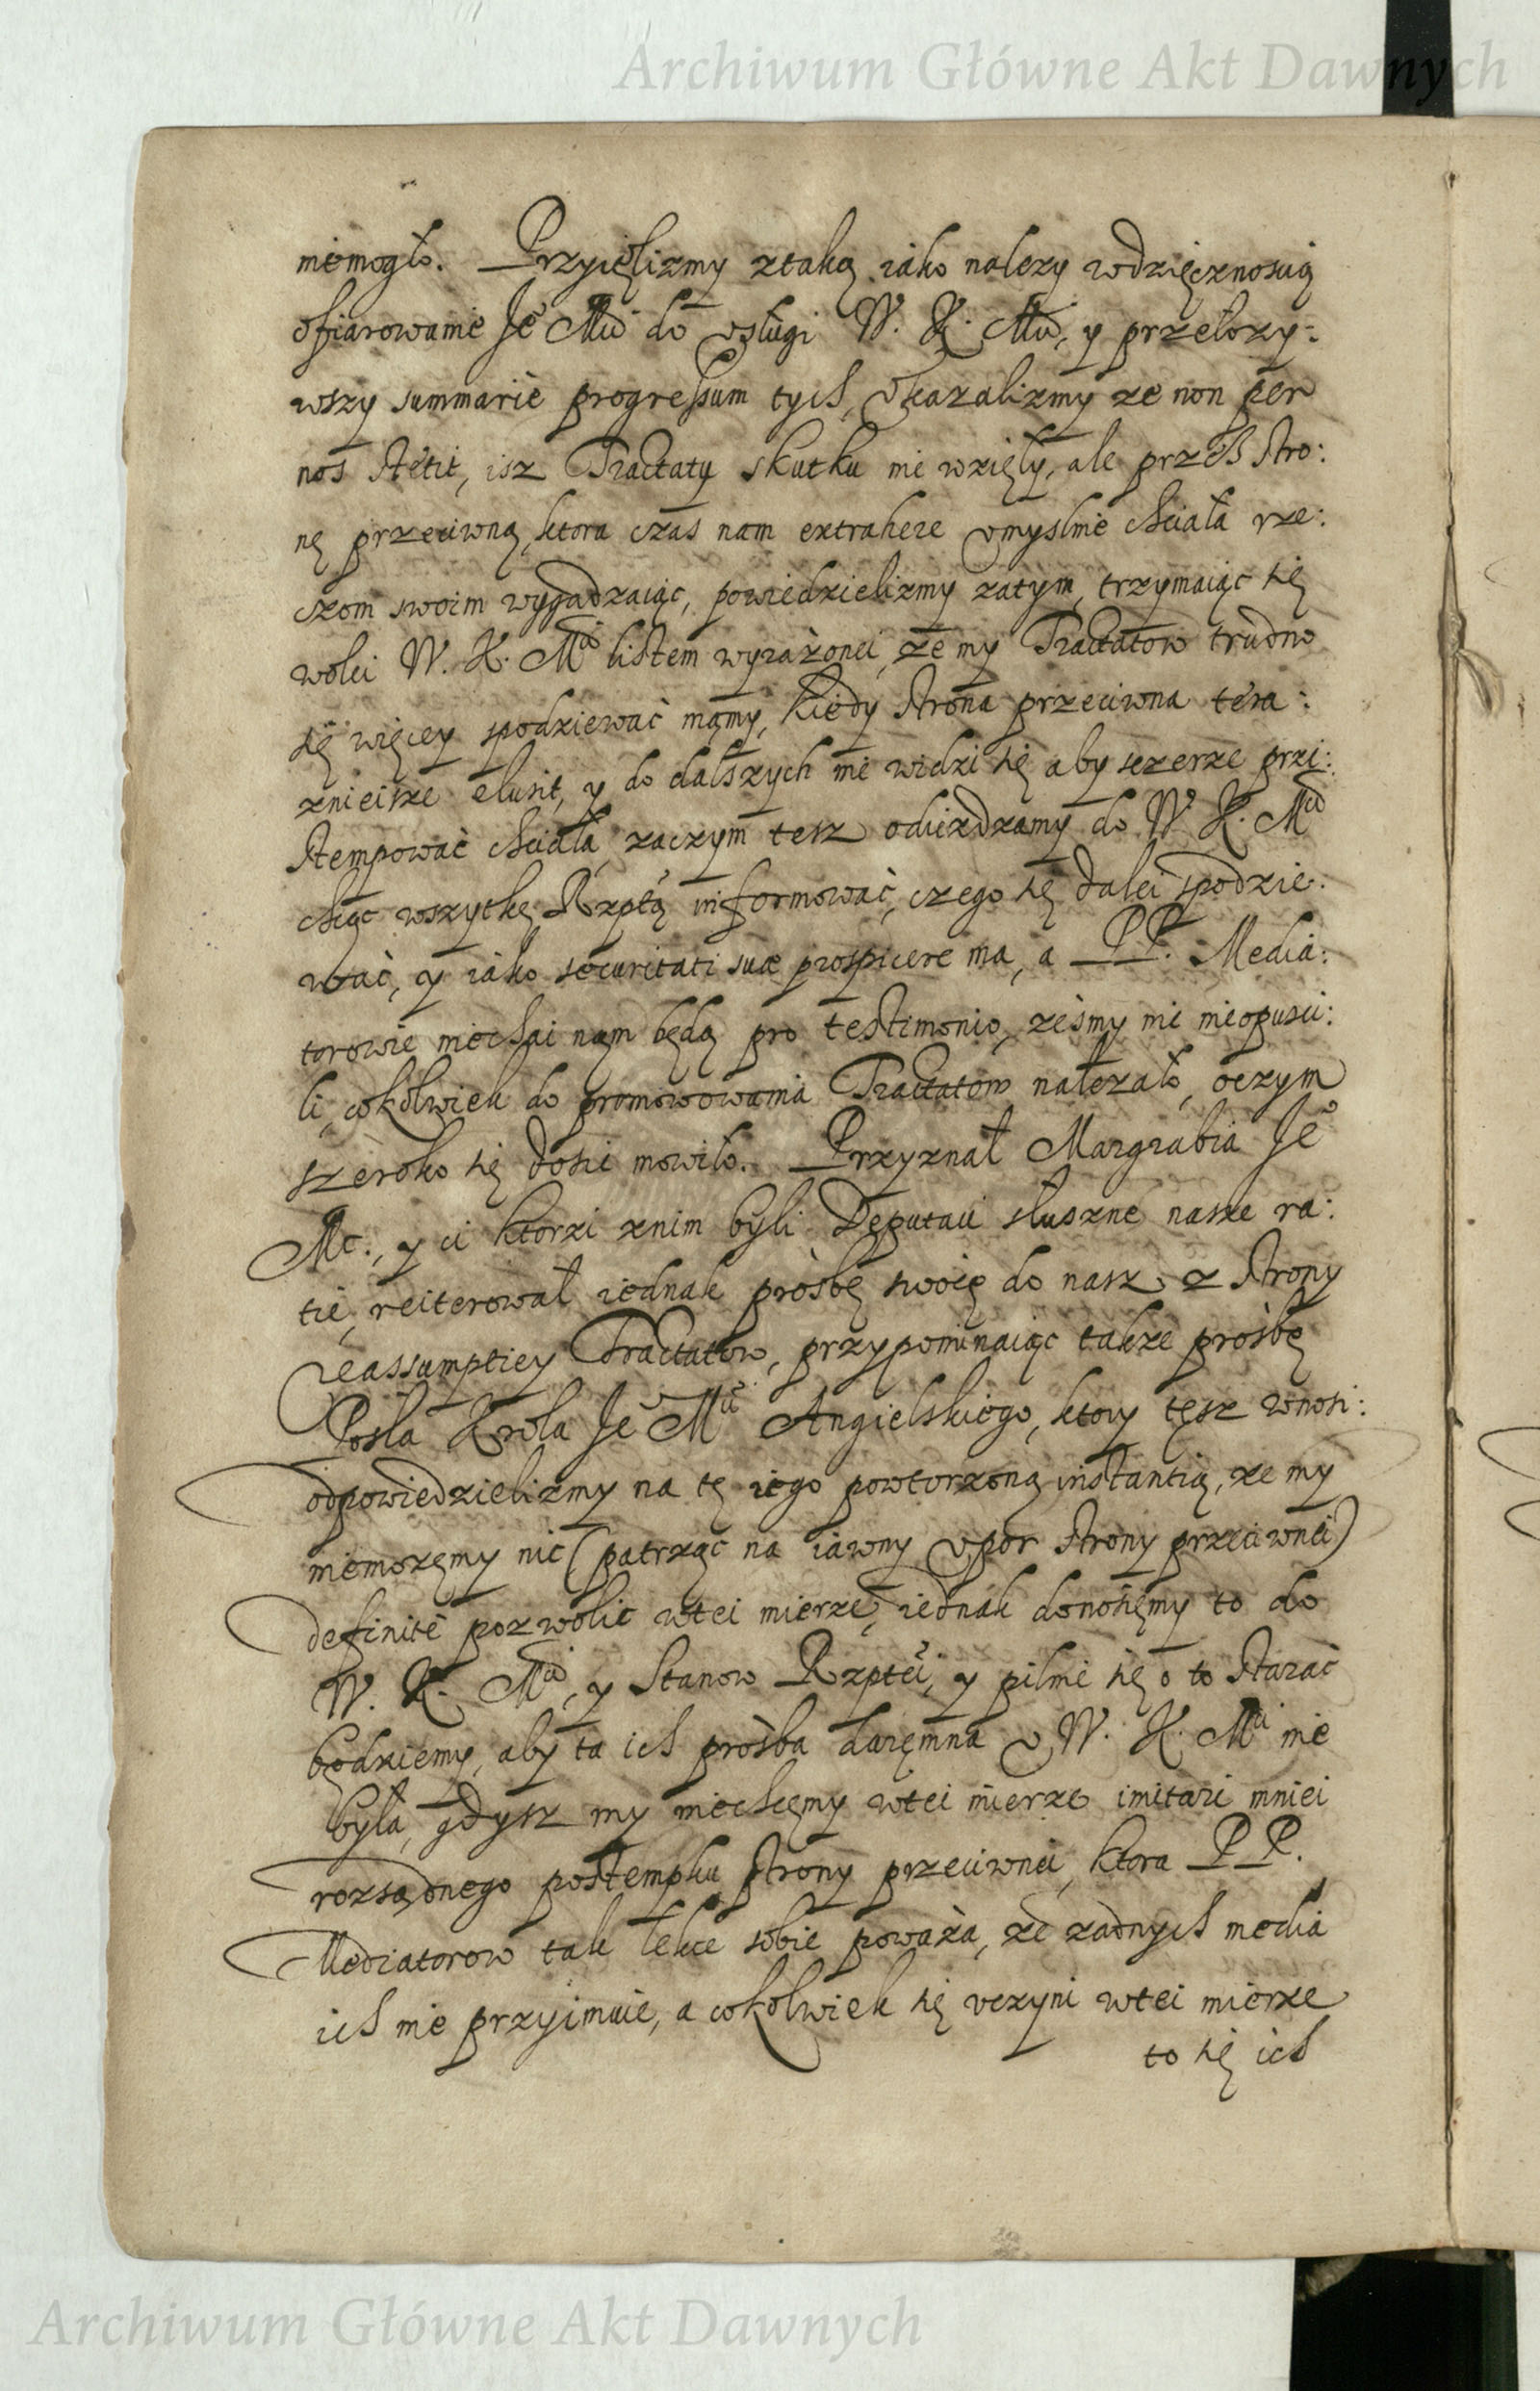 Archiwum Główne Akt Dawnych
niemogło. Przyięlizmy ztaką iako nalezy wdzięcznoscią
ofiarowanie Je° Mci do vsługi W. K. Mci, y przełozy:
wszy summariè progressum tych, vkazalizmy ze non per
nos stetit, isz Tractaty skutku nie wzięły, ale przes stro:
nę przeciwną, ktora czas nam extrahere vmyslnie chciała rze:
czom swoim wygadzaiąc, powiedzielizmy zatym, trzymaiąc się
wolei W. K. Mci listem wyrazonei, ze my Tractatow trudno
się więcey spodziewać mamy, kiedy strona przeciwna tera:
znieisze elusit, y do dalszych nie widzi się aby szczerze przi:
stempować chciała, zaczym tesz odiezdzamy do W. K. Mci
chcąc wszytkę Rzptą informować, czego się dalei spodzie:
wać, y iako securitati suae prospicere ma, a PP. Media:
torowie niechai nam będą pro testimonio, zesmy nic nieopusci:
li, cokolwiek do promowowania Tractatow nalezało, oczym
szeroko się dosic mowiło. Przyznał Margrabia Je°
Mc., y ci ktorzi znim byli Deputaci słuszne nasze ra:
tie, reiterował iednak prosbę swoię do nasz z strony
reassumptiey Tractatow, przypominaiąc takze prosbę
Posła Krola Je° Mci Angielskiego, ktory tęsz wnosi:
odpowiedzielizmy na tę iego powtorzoną instantią, ze my
niemozęmy nic (patrząc na iawny vpor strony przeciwnei)
definitè pozwolic wtei mierze, iednak doniosięmy to do
W. K. Mci, y Stanow Rzptei, y pilnie się o to starać
będziemy, aby ta ich prosba daręmna v W. K. Mci nie
była, gdysz my niechcęmy wtei mierze imitari mniei
rozsądnego postempku strony przeciwnei, ktora PP.
Mediatorow tak lekce sobie powaza, ze zadnych media
ich nie przyimuie, a cokolwiek się vczyni wtei mierze
to się ich
Archiwum Główne Akt Dawnych